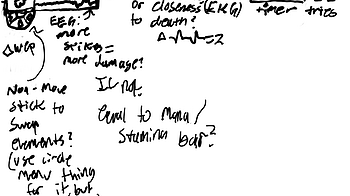 EEG:
more
spikes =
more damage?
or closeness (EKG)
to death?
= 2
timer tries
Non-move
stick to
swap
elements?
(use circle
menu thing
for it, but
If not,
equal to mana/
stamina bar?